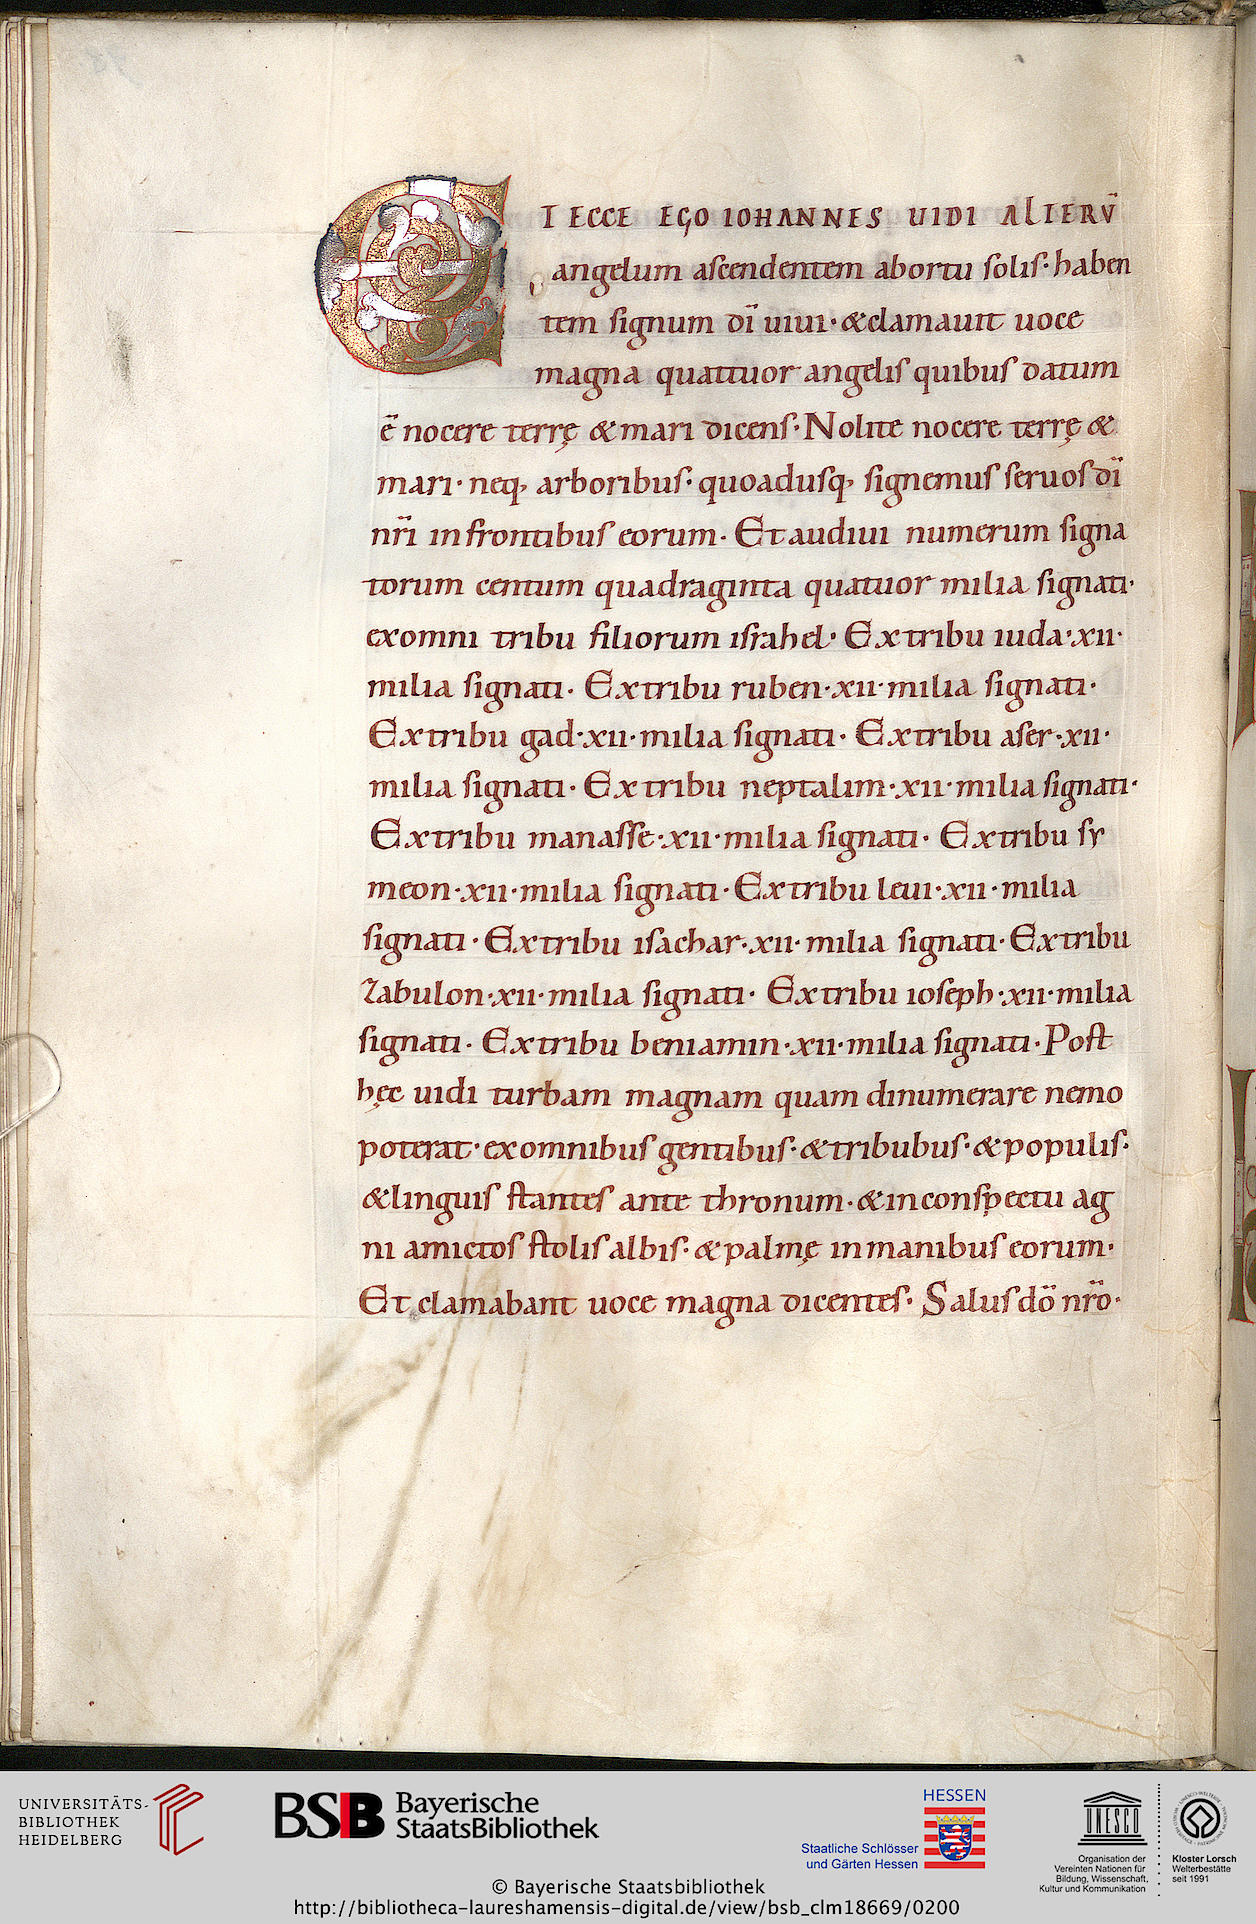 ET ECCE EGO IOHANNES UIDI ALTERŪ
angelum ascendentem abortu solis· haben
tem signum dī uiui· &clamauit uoce
magna quattuor angelis quibus datum
ē nocere terrę & mari dicens· Nolite nocere terrę &
mari· neq, arboribus· quoadusq, signemus seruos dī
nr̄i infrontibus eorum· Et audiui numerum signa
torum centum quadraginta quatuor milia signati·
exomni tribu filiorum israhel· Extribu iuda·xii·
milia signati· Extribu ruben·xii·milia signati·
Extribu gad·xii·milia signati· Extribu aser·xii·
milia signati· Extribu neptalim·xii·milia signati·
Extribu manasse·xii·milia signati· Extribu sy
meon·xii·milia signati· Extribu leui·xii·milia
signati· Extribu isachar·xii·milia signati· Extribu
zabulon·xii·milia signati· Extribu ioseph·xii·milia
signati· Extribu beniamin·xii·milia signati· Post
hęc uidi turbam magnam quam dinumerare nemo
poterat· exomnibus gentibus· &tribubus· &populis·
&linguis stantes ante thronum· &inconspectu ag
ni amictos stolis albis· &palmę inmanibus eorum·
Et clamabant uoce magna dicentes· Salus dō nr̄o·
UNIVERSITÄTS-
BIBLIOTHEK
HEIDELBERG
BSB Bayerische
StaatsBibliothek
HESSEN
Staatliche Schlösser
und Gärten Hessen
UNESCO
Organisation der
Vereinten Nationen für
Bildung, Wissenschaft,
Kultur und Kommunikation
Kloster Lorsch
Welterbestätte
seit 1991
© Bayerische Staatsbibliothek
http://bibliotheca-laureshamensis-digital.de/view/bsb_clm18669/0200